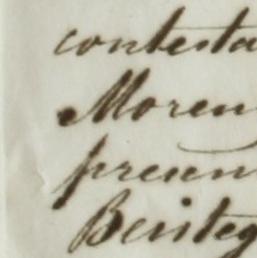 contesta
Moren
presen
Beniteg